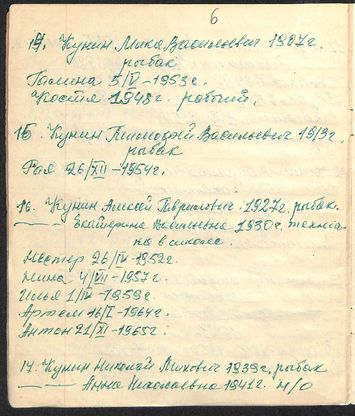 6
14. Кунин Мика Васильевич 1907г.
рыбак
Галина 5/V-1953г.
Костя 1948г. рабочий.
15. Кунин Тимофей Васильевич 1913г.
рыбак
Рая 26/XII-1954г.
16. Кунин Алексей Гаврилович 1927г. рыбак.
—— Екатерина Васильевна 1930г. технич-
ка в школе.
Нестер 26/IV-1952г.
Нина 4/VII-1957г.
Илья 1/IV-1959г.
Артем 16/I-1964г.
Антон 21/XI-1965г.
17. Кунин Николай Микович 1939г. рыбак
—— Анна Николаевна 1941г. н/о